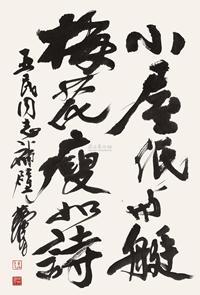 小屋低如艇
梅花瘦如詩
玉民同志補壁